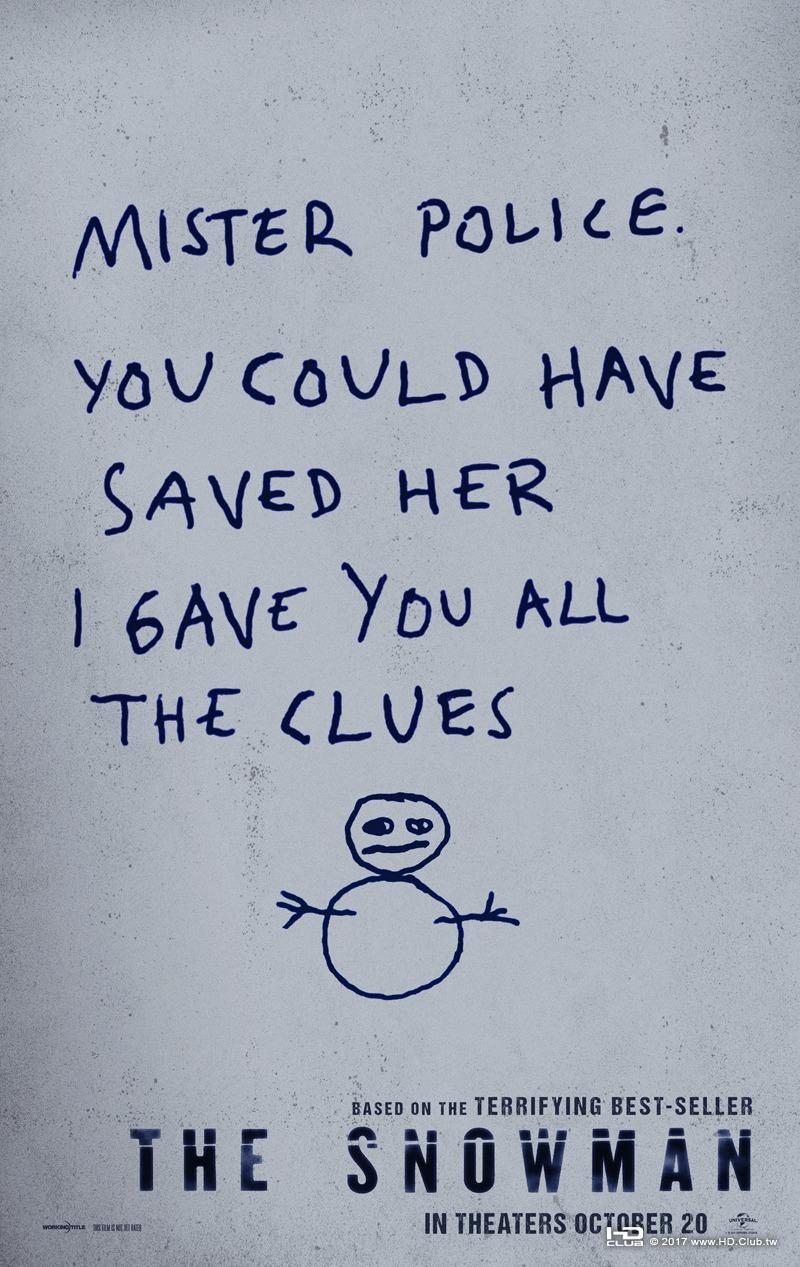 MISTER POLICE.
YOU COULD HAVE
SAVED HER
I GAVE YOU ALL
THE CLUES
BASED ON THE TERRIFYING BEST-SELLER
THE SNOWMAN
IN THEATERS OCTOBER 20
WORKING TITLE THIS FILM IS NOT YET RATED UNIVERSAL
HD CLUB © 2017 www.HD.Club.tw